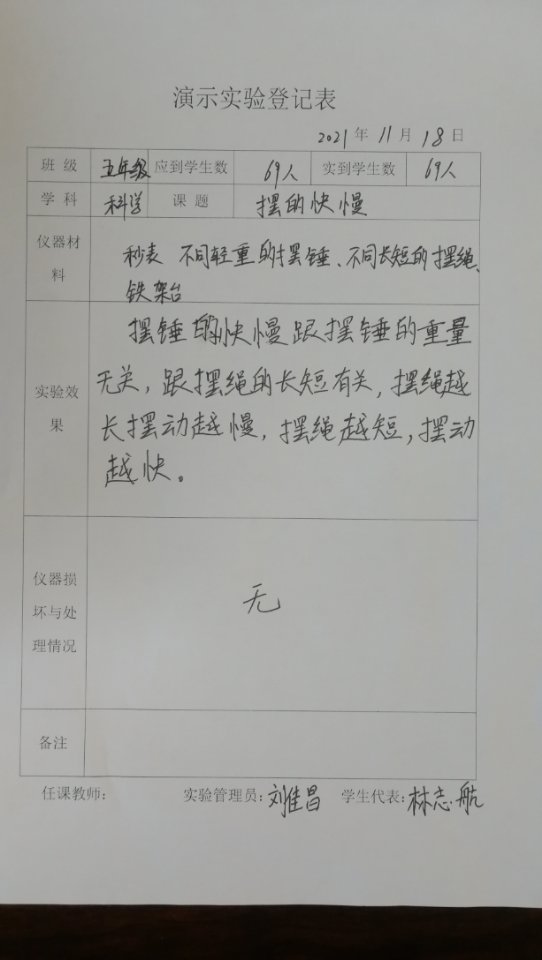 演示实验登记表
2021年11月18日
班级 五年级 应到学生数 69人 实到学生数 69人
学科 科学 课题 摆的快慢
仪器材料 秒表 不同轻重的摆锤、不同长短的摆绳、
铁架台
摆锤的快慢跟摆锤的重量
无关，跟摆绳的长短有关，摆绳越
实验效果
长摆动越慢，摆绳越短，摆动
越快。
仪器损坏与处理情况 无
备注
任课教师： 实验管理员：刘佳昌 学生代表：林志航